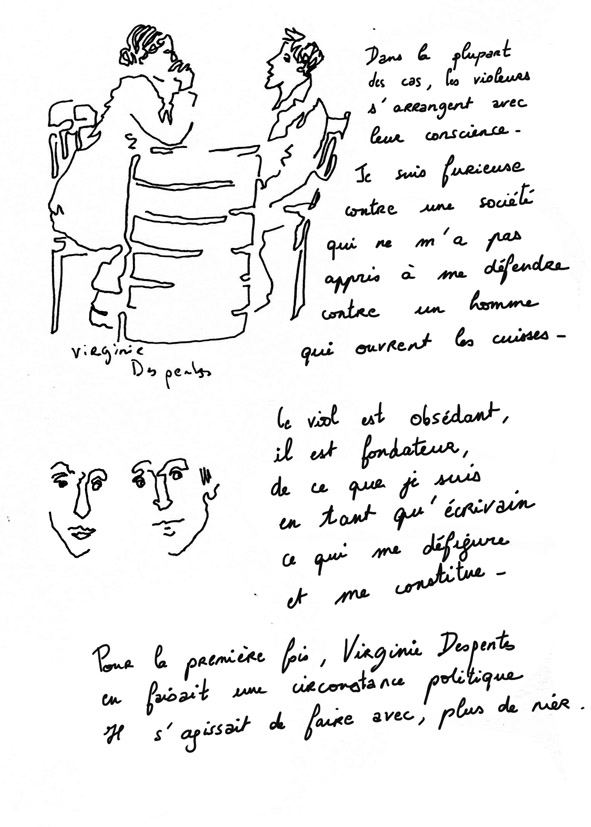 Dans la plupart
des cas, les violeurs
s'arrangent avec
leur conscience -
Je suis furieuse
contre une société
qui ne m'a pas
appris à me défendre
contre un homme
qui ouvrent les cuisses -
virginie
Despentes
le viol est obsédant,
il est fondateur,
de ce que je suis
en tant qu'écrivain
ce qui me défigure
et me constitue -
Pour la première fois, Virginie Despentes
en faisait une circonstance politique
Il s'agissait de faire avec, plus de nier.